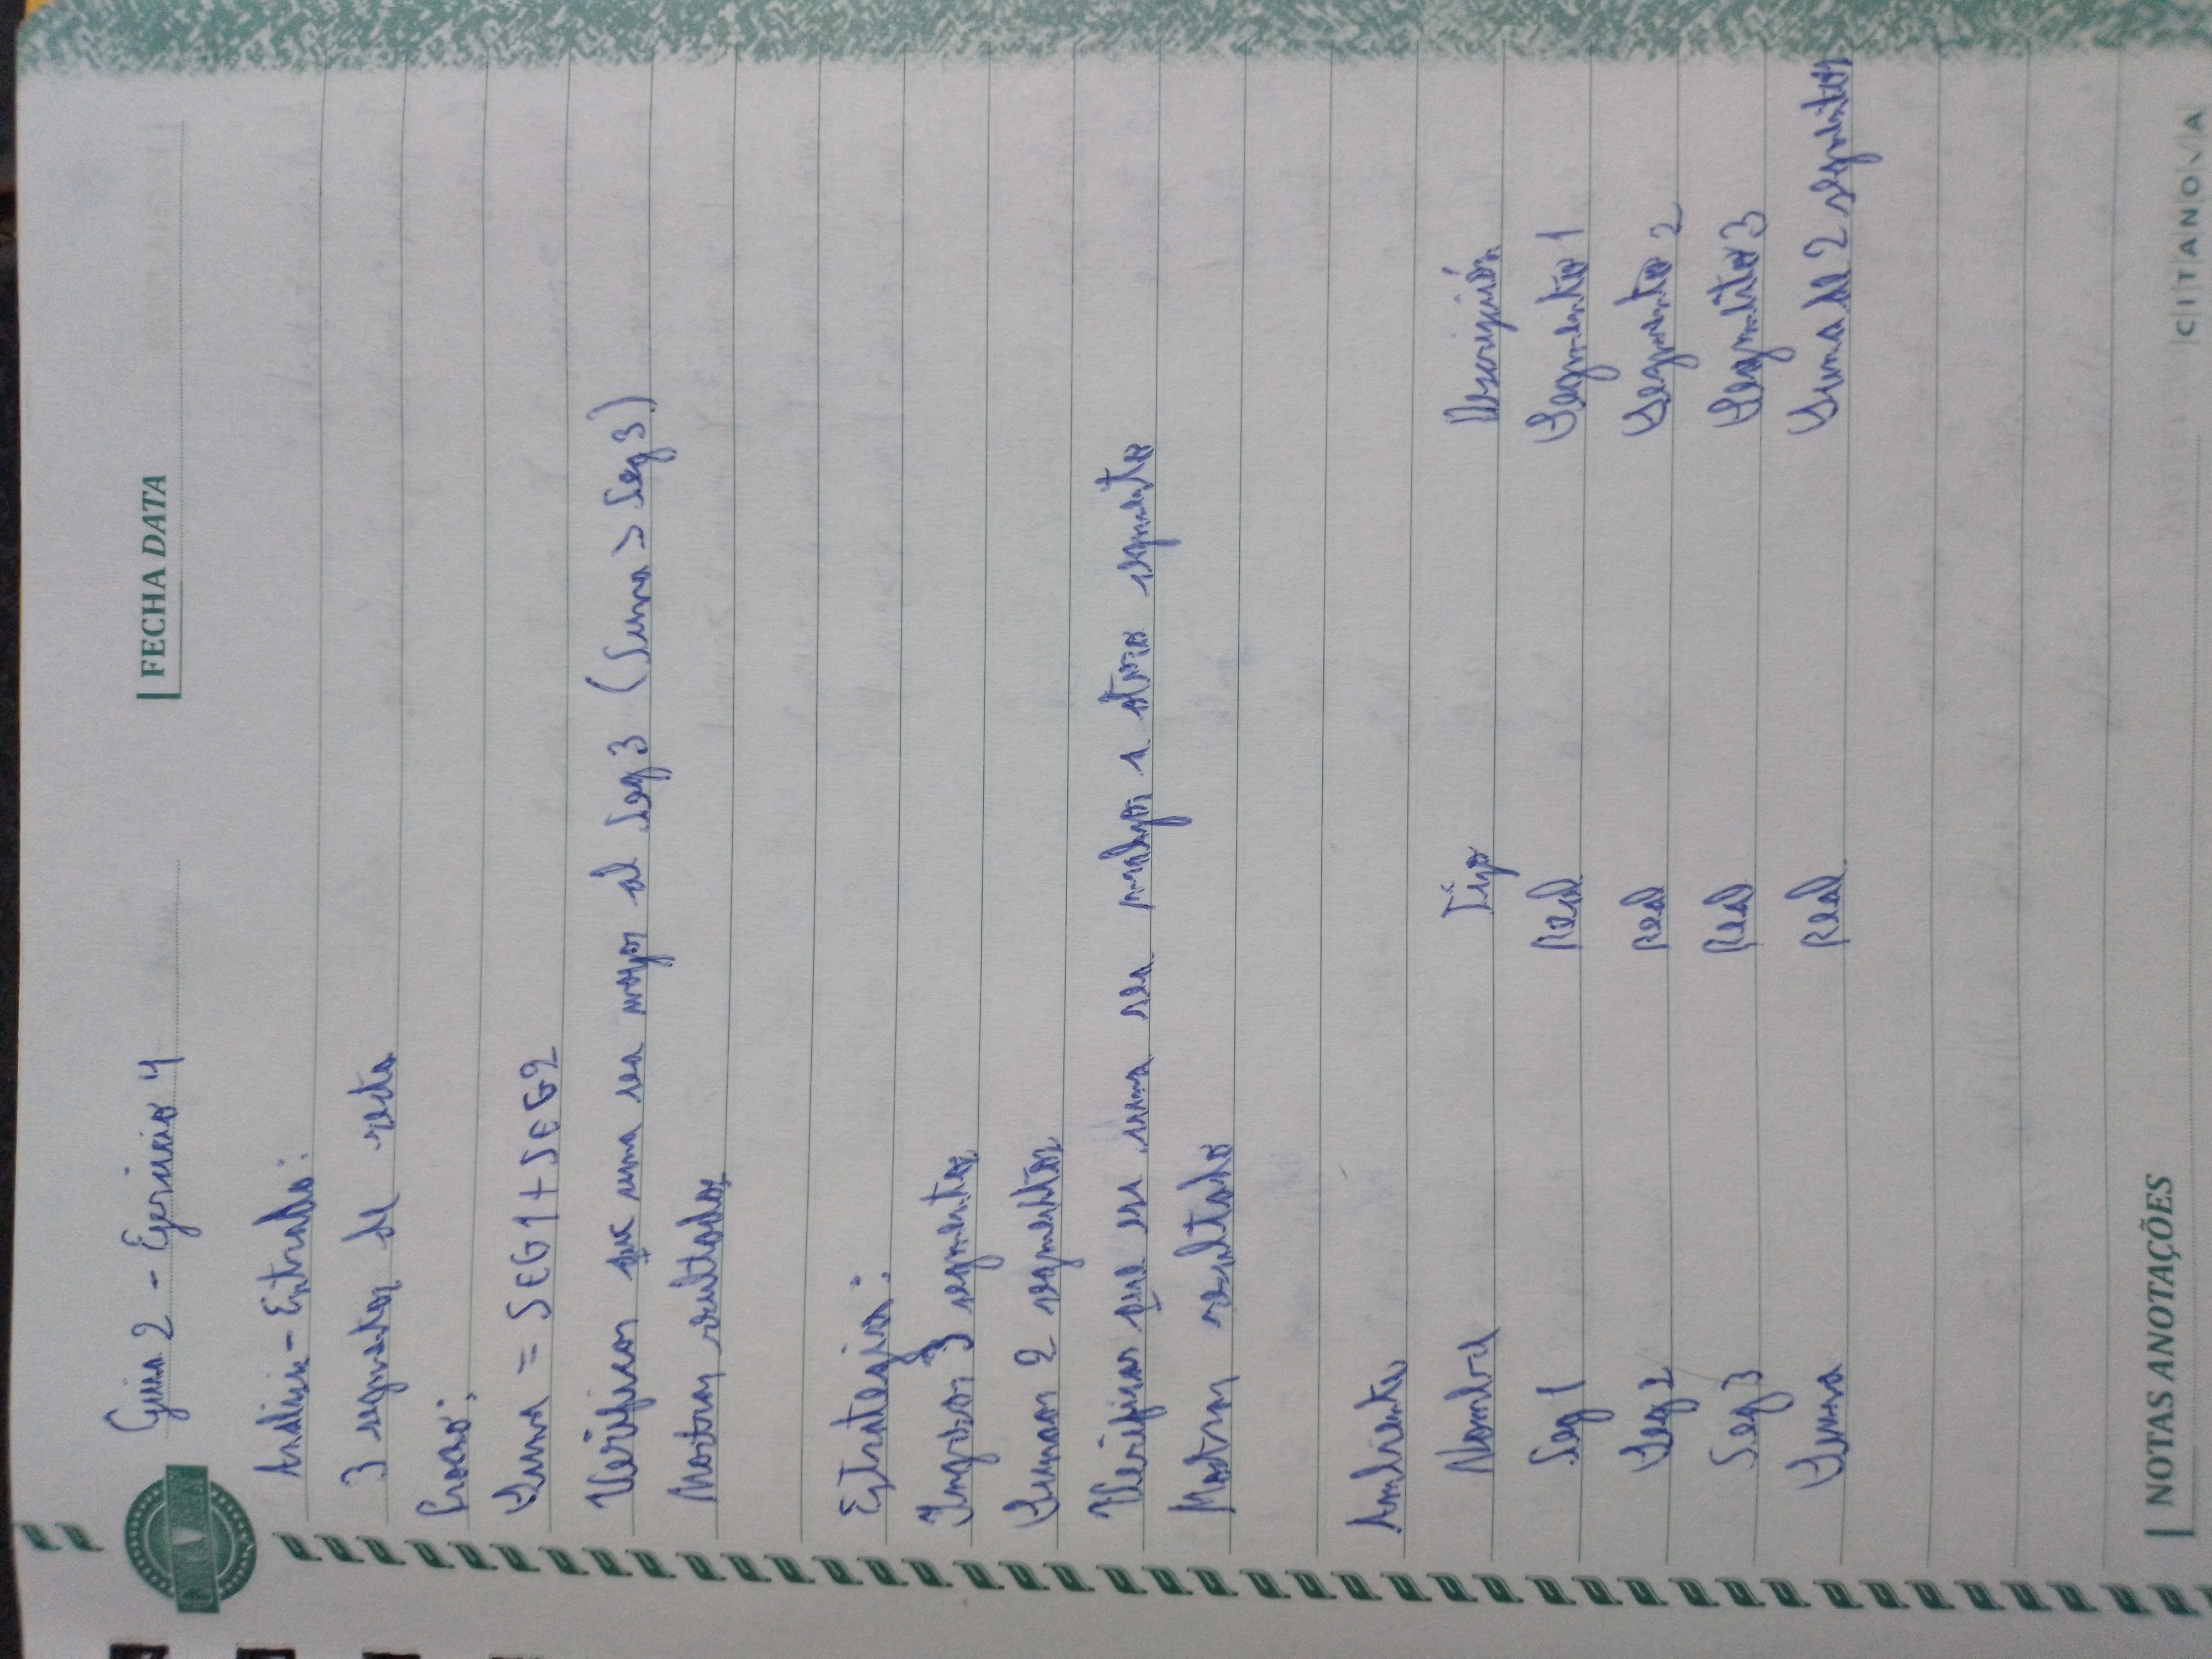 Guia 2 - Ejercicio 4
FECHA DATA
Análisis - Entrada:
3 segmentos de recta
Proceso:
Suma = SEG1+SEG2
Verificar que suma sea mayor al Seg 3 (Suma > Seg 3)
Mostrar resultados
Estrategia:
Ingresar 3 segmentos
Sumar 2 segmentos
Verificar que esa suma sea mayor a otro segmento
Mostrar resultado
Ambiente
Nombre Tipo Descripción
Seg 1 Real Segmento 1
Seg 2 Real Segmento 2
Seg 3 Real Segmento 3
Suma Real Suma de 2 segmentos
NOTAS ANOTAÇÕES
CITANOVA